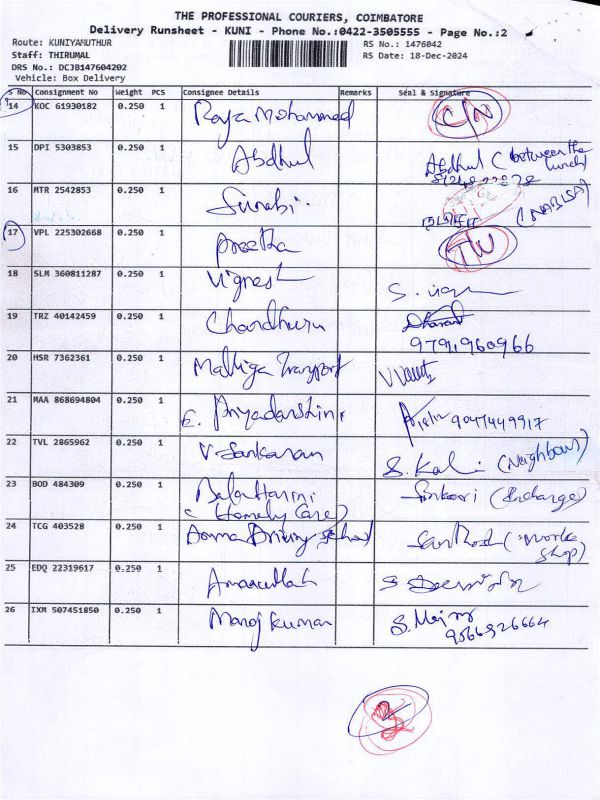 THE PROFESSIONAL COURIERS, COIMBATORE
Delivery Runsheet - KUNI - Phone No.:0422-3505555 - Page No.:2
Route: KUNIYAMUTHUR RS No.: 1476042
Staff: THIRUMAL RS Date: 18-Dec-2024
DRS No.: DCJB147604202
Vehicle: Box Delivery
S No Consignment No Weight PCS Consignee Details Remarks Seal & Signature
14 KOC 61930182 0.250 1 Raja Mohammed C/N
15 DPI 5303853 0.250 1 Abdhul Abdhul (between the lunch)
16 MTR 2542853 0.250 1 Surabi. (NABISA)
17 VPL 225302668 0.250 1 Preetha
18 SLM 360811287 0.250 1 Vignesh
19 TRZ 40142459 0.250 1 Chandhuru
9791960966
20 HSR 7362361 0.250 1 Malliga Transport
21 MAA 868694804 0.250 1 E. Priyadarshini 9047449917
22 TVL 2865962 0.250 1 V. Sankaran S. Kali (Neighbour)
23 BOD 484309 0.250 1 Bala Harini (Incharge)
(Homely Care)
24 TCG 403528 0.250 1 Amma Driving School Santhosh (work shop)
25 EDQ 22319617 0.250 1 Amanullah
26 IXM 507451850 0.250 1 Manoj Kumar
9566926664